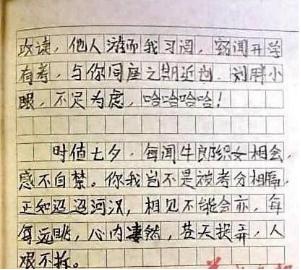 攻读，他人游而我习阅，窃闻开学
有考，与你同座之期近尚，刘胖小
眼，不足为虑，哈哈哈哈！
时值七夕，每闻牛郎织女相会，
感不自禁。你我岂不是被考分相隔，
正如迢迢河汉，相见不能会亦，每
每远眺，心内凄然，苍天捉弄，人
艰不拆。